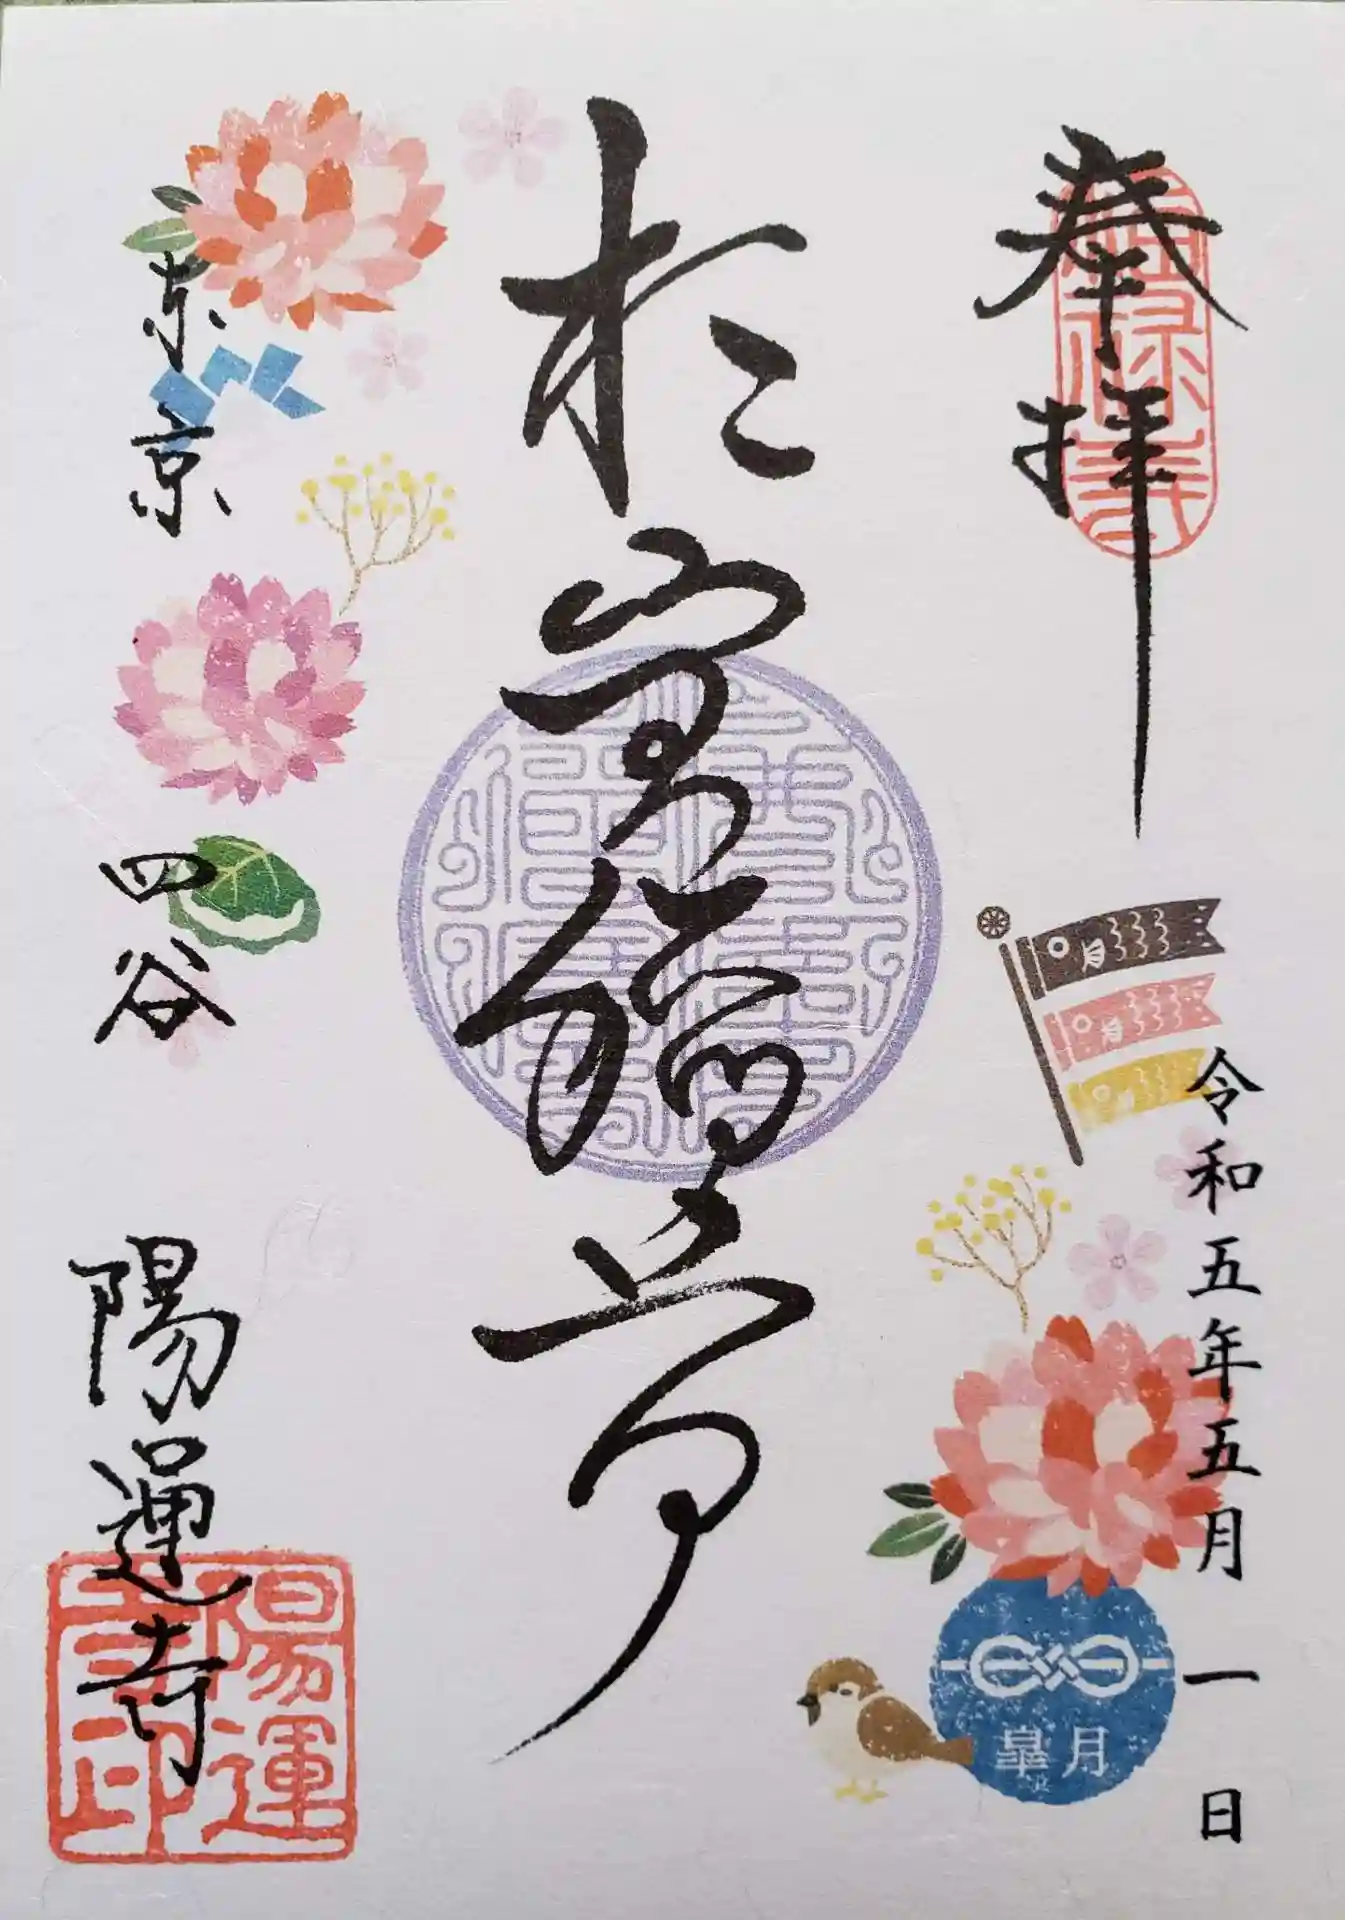 奉拝
令和五年五月一日
皐月
於岩稲荷
東京
四谷
陽運寺
陽運
寺印